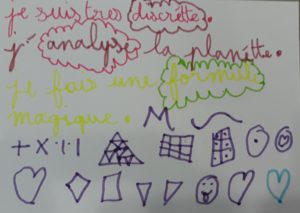 je suis tres discrette.
j'analyse la planètte.
je fais une formule
magique. M
+ x ÷ |